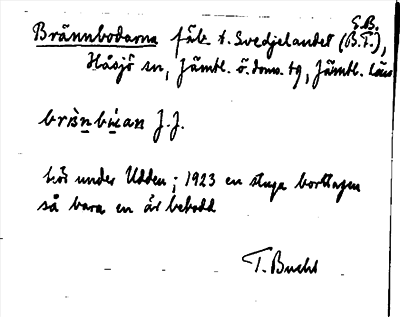 G.B.
Brännbodarna fäb. t. Svedjelandet (B.T.),
Håsjö sn, Jämtl. ö. doms. tg, Jämtl. län
J.J.
hör under Udden; 1923 en stuga borttagen
så bara en är bebodd
T. Bucht